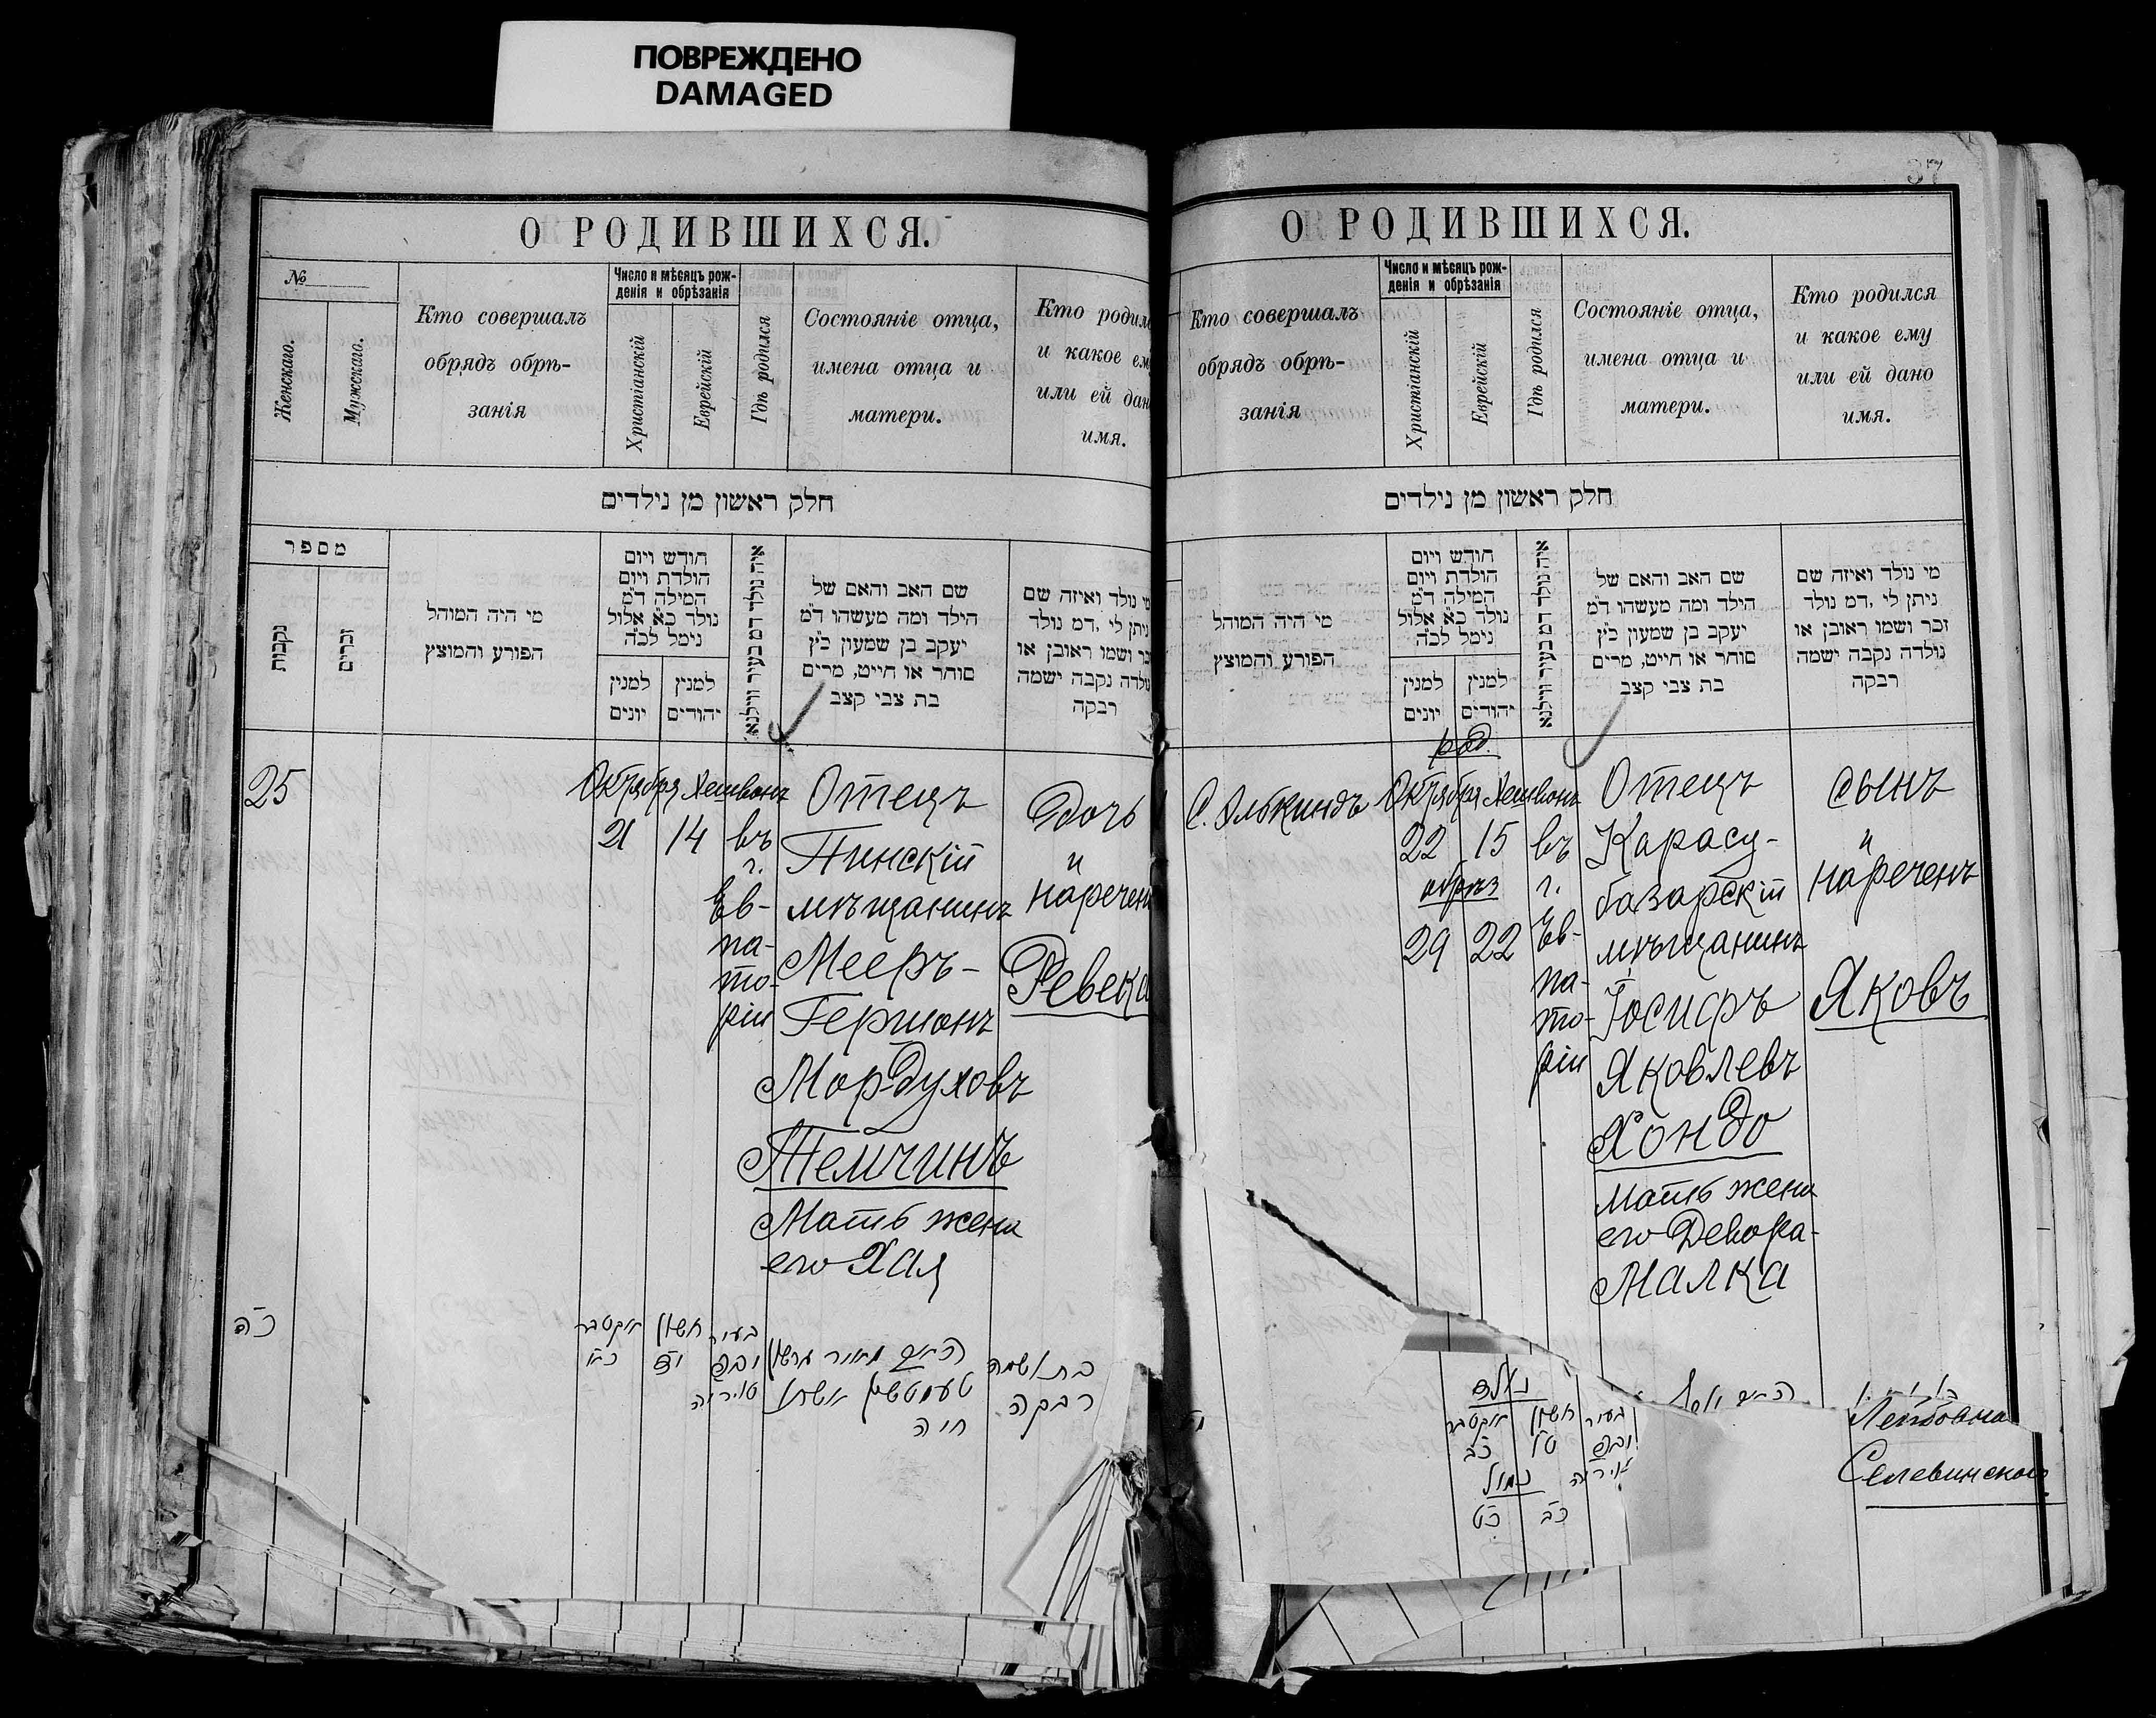 ПОВРЕЖДЕНО
DAMAGED
О РОДИВШИХСЯ.
№
Женскаго.
Мужескаго.
Кто совершалъ
обрядъ обрѣ-
занія
Число и мѣсяцъ рож-
денія и обрѣзанія
Христіанскій
Еврейскій
Гдѣ родился
Состояніе отца,
имена отца и
матери.
Кто родил
и какое ем
или ей дан
имя.
חלק ראשון מן נילדים
מספר
נקבות
זכרים
מי היה המוהל
הפורע והמוצץ
חודש ויום
הולדת ויום
המילה ד"מ
נולד כ"א אלול
נימל לכ"ה
למנין
יונים
למנין
יהודים
איה נולד דמ בעיר ווילנא
שם האב והאם של
הילד ומה מעשהו ד"מ
יעקב בן שמעון כ"ץ
סוחר או חייט, מרים
בת צבי קצב
מי נולד ואיזה שם
ניתן לי ,דמ נולד
זכר ושמו ראובן או
נולדה נקבה ישמה
רבקה
25
Октября Хешвонъ
21 14
въ
г.
Ев-
па-
то-
ріи
Отецъ
Пинскій
мѣщанинъ
Мееръ-
Гершонъ
Мордуховъ
Темчинъ
Мать жена
его Хая
Дочь
и
наречен
Ревека
כ"ה
אקטבר
כ"א
חשון
י"ד
בעיר
טיריה
האב מאיר גרשון
חיה
רבקה
37
О РОДИВШИХСЯ.
Кто совершалъ
обрядъ обрѣ-
занія
Число и мѣсяцъ рож-
денія и обрѣзанія
Христіанскій
Еврейскій
Гдѣ родился
Состояніе отца,
имена отца и
матери.
Кто родился
и какое ему
или ей дано
имя.
חלק ראשון מן נילדים
מי היה המוהל
הפורע והמוצץ
חודש ויום
הולדת ויום
המילה ד"מ
נולד כ"א אלול
נימל לכ"ה
למנין
יונים
למנין
יהודים
איה נולד דמ בעיר ווילנא
שם האב והאם של
הילד ומה מעשהו ד"מ
יעקב בן שמעון כ"ץ
סוחר או חייט, מרים
בת צבי קצב
מי נולד ואיזה שם
ניתן לי ,דמ נולד
זכר ושמו ראובן או
נולדה נקבה ישמה
רבקה
С. Элькиндъ
род.
Октября Хешвонъ
22 15
обрѣз
29 22
въ
г.
Ев-
па-
то-
ріи
Отецъ
Карасу-
базарскій
мѣщанинъ
Іосифъ
Яковлевъ
Хондо
Мать жена
его Девора-
Малка
сынъ
и
нареченъ
Яковъ
נולד
אקטבר
כ"ב
חשון
ט"ו
בעיר
נמול
כ"ט
כ"ב
Лейбовна
Селевинской